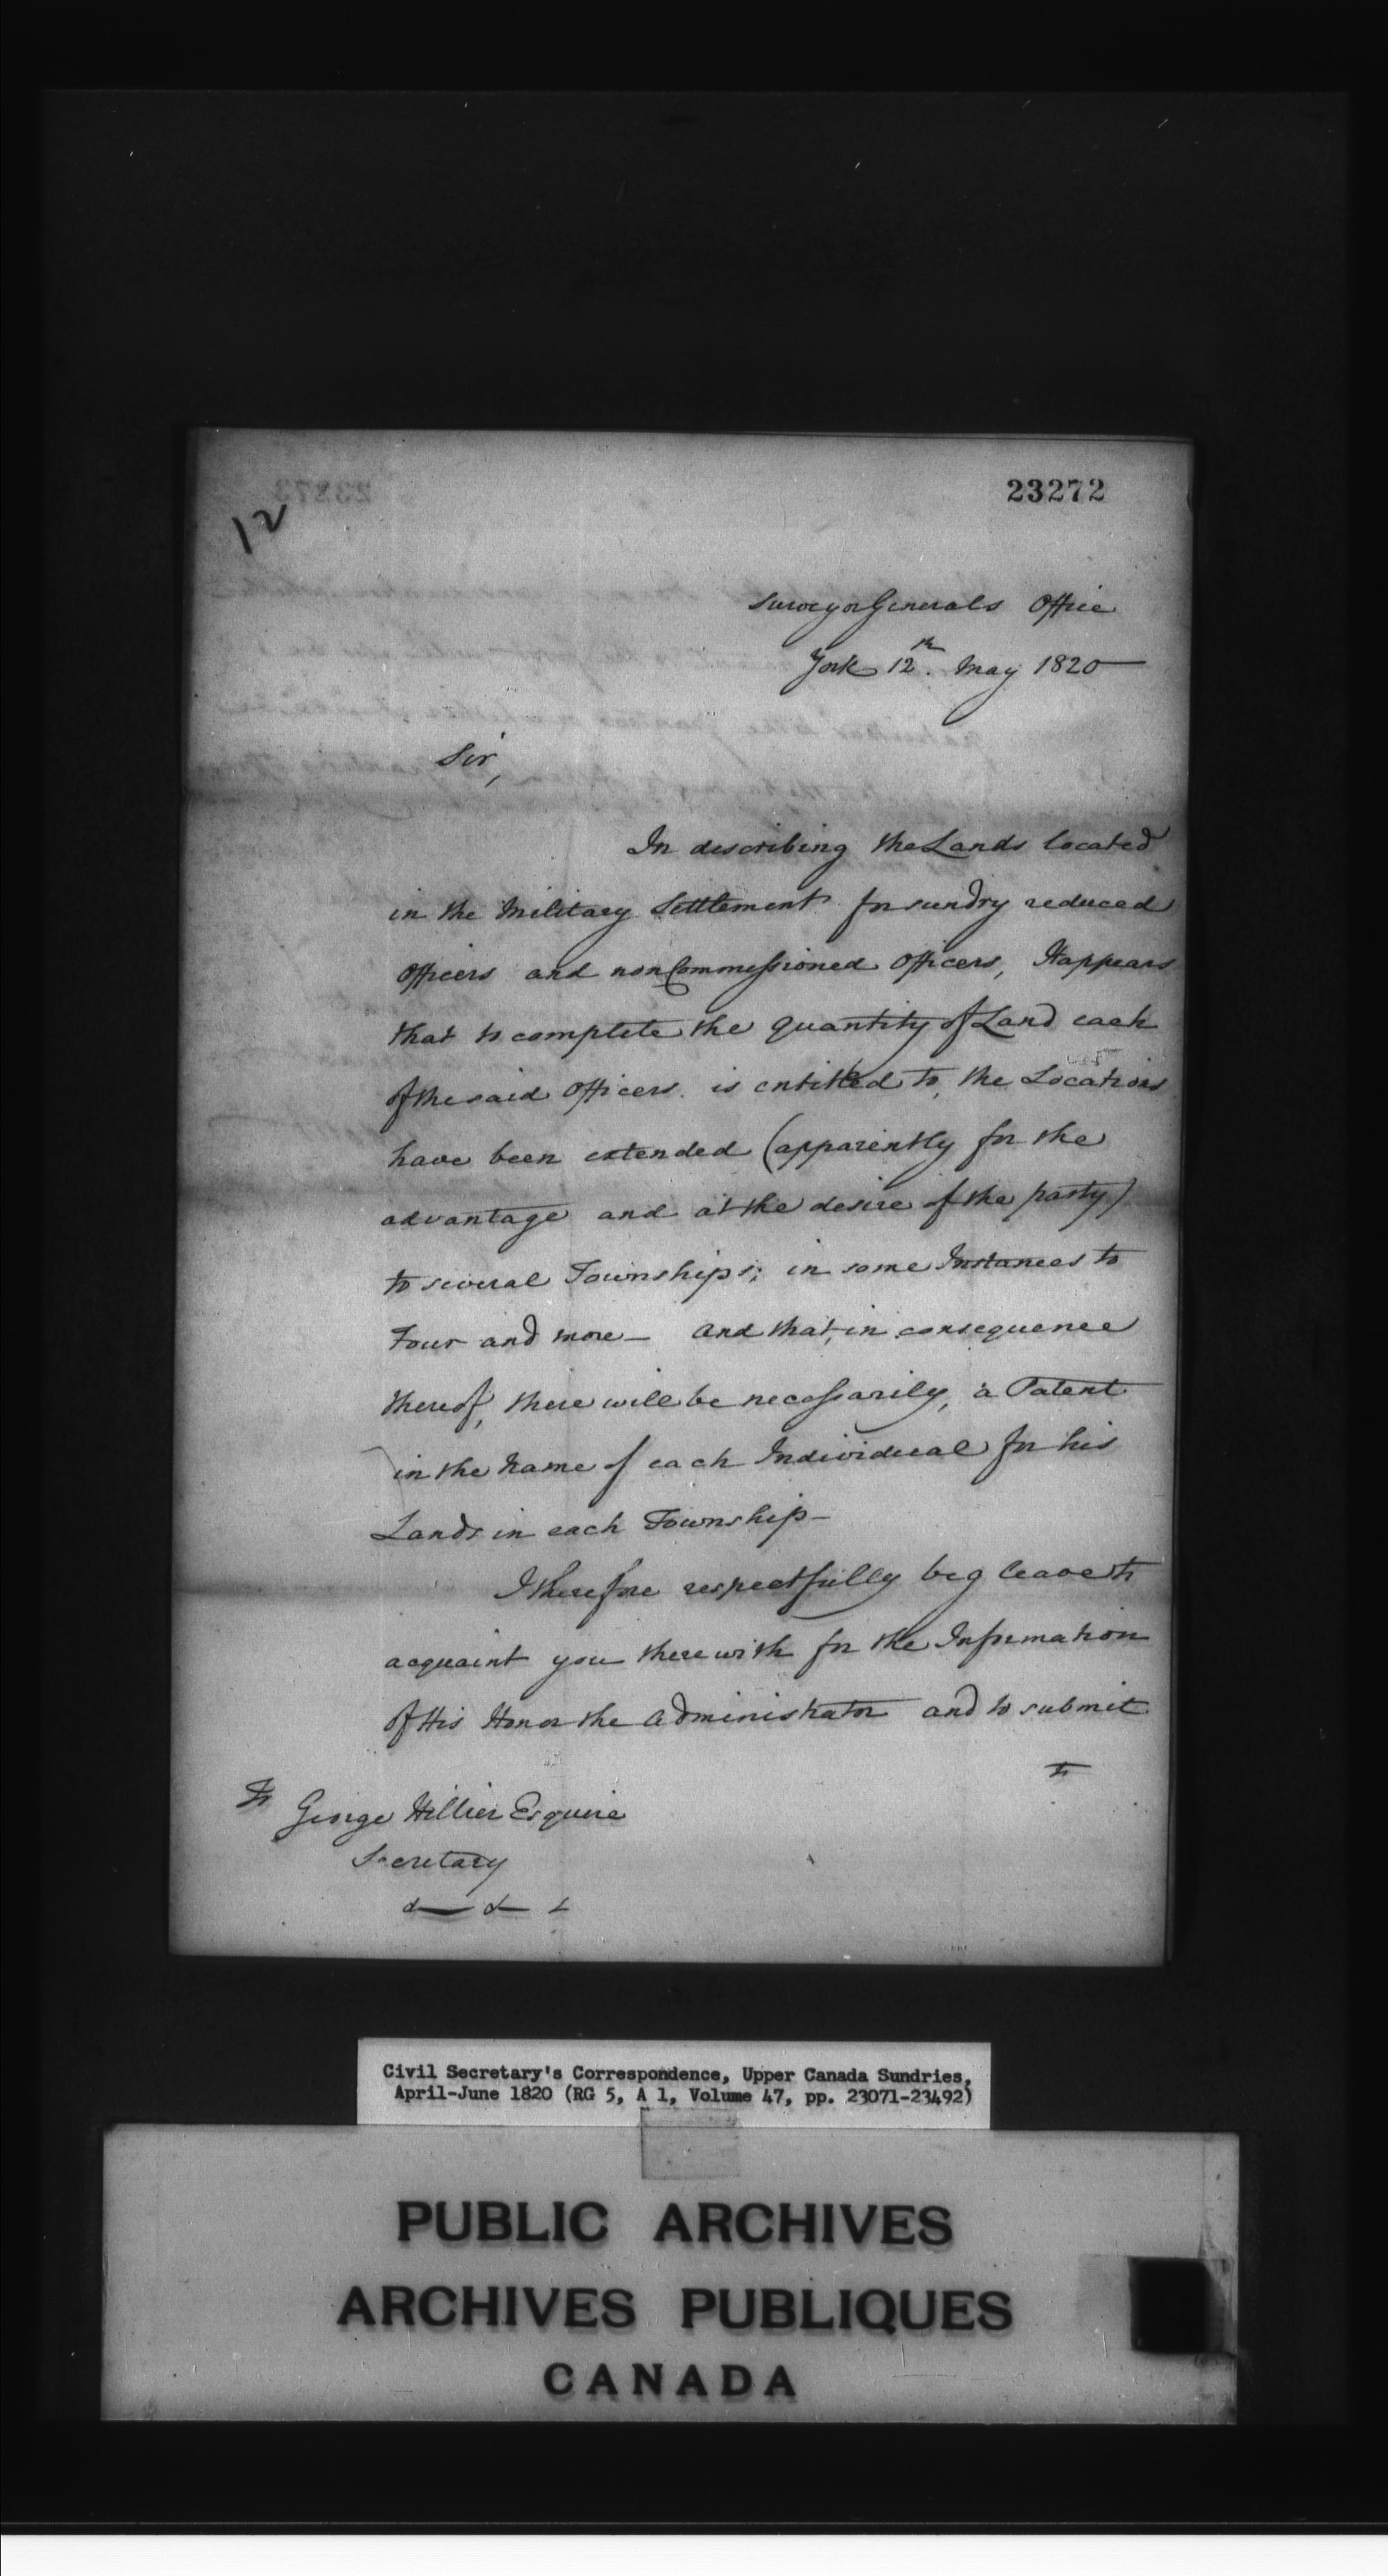 23272
12
Surveyor Generals Office
York 12th. May 1820
Sir,
In describing the Lands located
in the Military Settlement for sundry reduced
Officers and non Commissioned Officers, It appears
that to complete the quantity of Land each
of the said Officers is entitled to, the Locations
have been extended (apparently for the
advantage and at the desire of the party)
to several Townships; in some Instances to
Four and more — and that, in consequence
thereof, there will be necessarily, a Patent
in the Name of each Individual for his
Lands in each Township —
I therefore respectfully beg leave to
acquaint you therewith for the Information
of His Honor the Administrator and to submit
to
To George Hillier Esquire
Secretary
& & &
Civil Secretary's Correspondence, Upper Canada Sundries,
April-June 1820 (RG 5, A 1, Volume 47, pp. 23071-23492)
PUBLIC ARCHIVES
ARCHIVES PUBLIQUES
CANADA